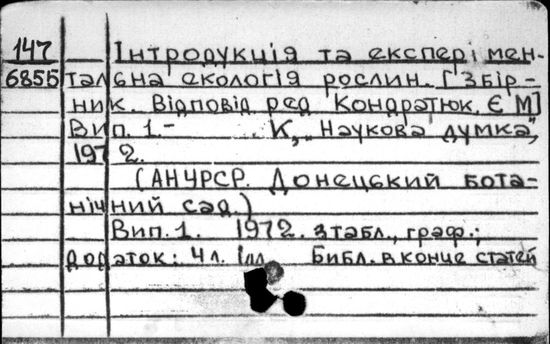 147 Інтродукція та експерімен-
6855 талєна екологія рослин. [Збір-
ник. Відповід ред Кондратюк, Є М]
Вип. 1- К, „Наукова думка”,
1972.
(АНУРСР. Донецький бота-
нічний сад.)
Вип. 1. 1972. з табл., граф.;
додаток: 4 л. Ілл Библ. в конце статей